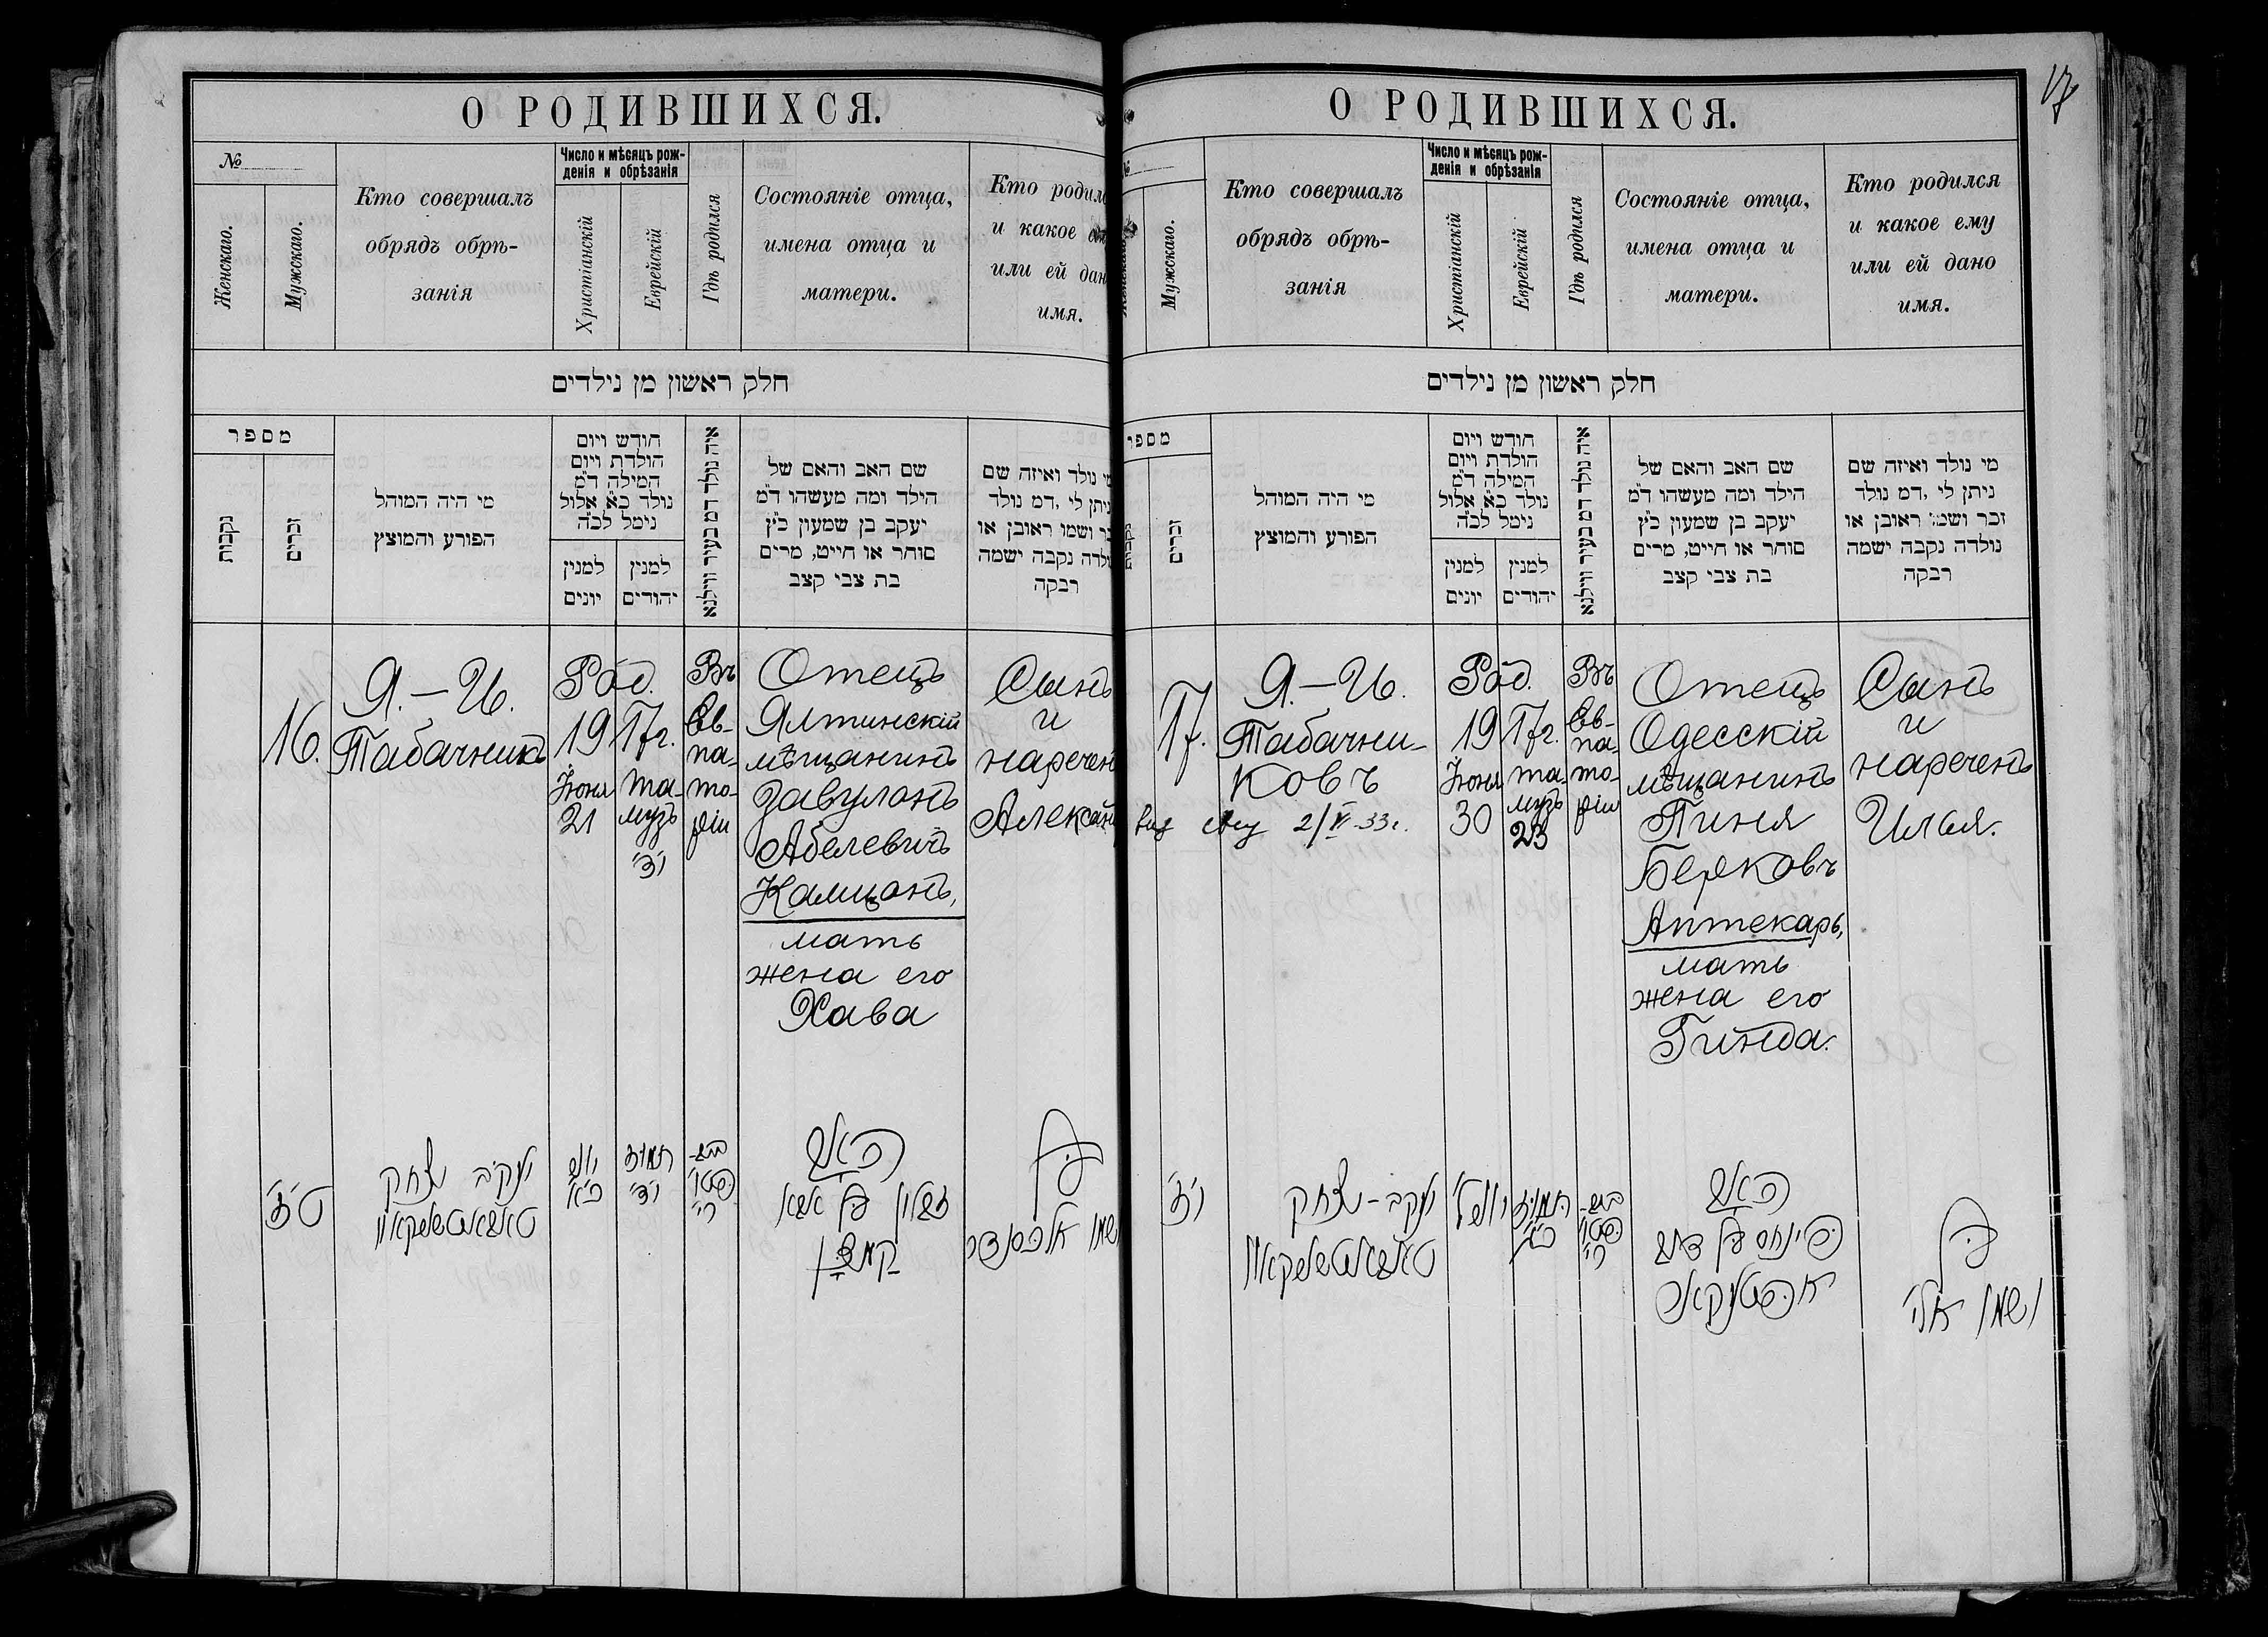 О РОДИВШИХСЯ.
№
Женскаго.
Мужскаго.
Кто совершалъ
обрядъ обрѣ-
занія
Число и мѣсяцъ рож-
денія и обрѣзанія
Христіанскій
Еврейскій
Гдѣ родился
Состояніе отца,
имена отца и
матери.
Кто родил
и какое
или ей дан
имя.
חלק ראשון מן נילדים
מספר
נקבות
זכרים
מי היה המוהל
הפורע והמוצץ
חודש ויום
הולדת ויום
המילה ד״מ
נולד כ״א אלול
נימל לכ״ה
למנין
יונים
למנין
יהודים
איה נולד דמ בעיר ווילנא
שם האב והאם של
הילד ומה מעשהו ד״מ
יעקב בן שמעון כ״ץ
סוחר או חייט, מרים
בת צבי קצב
מי נולד ואיזה שם
ניתן לי, דמ נולד
זכר ושמו ראובן או
נולדה נקבה ישמה
רבקה
16.
Я.-И.
Табачникъ
Род.
19 17 г.
Іюня
21
та-
музъ
י״ד
Въ
Ев-
па-
то-
ріи
Отецъ
Ялтинскій
мѣщанинъ
Завулонъ
Абелевичъ
Камцонъ,
мать
жена его
Хава
Сынъ
и
нареченъ
Александ
ט״ז
יעקב יצחק
יוני
כ״א
תמוז
האב
זבולון
קמצן
בן
ושמו אלכסנדר
17
О РОДИВШИХСЯ.
№
Женскаго
Мужскаго.
Кто совершалъ
обрядъ обрѣ-
занія
Число и мѣсяцъ рож-
денія и обрѣзанія
Христіанскій
Еврейскій
Гдѣ родился
Состояніе отца,
имена отца и
матери.
Кто родился
и какое ему
или ей дано
имя.
חלק ראשון מן נילדים
מספר
נקבות
זכרים
מי היה המוהל
הפורע והמוצץ
חודש ויום
הולדת ויום
המילה ד״מ
נולד כ״א אלול
נימל לכ״ה
למנין
יונים
למנין
יהודים
איה נולד דמ בעיר ווילנא
שם האב והאם של
הילד ומה מעשהו ד״מ
יעקב בן שמעון כ״ץ
סוחר או חייט, מרים
בת צבי קצב
מי נולד ואיזה שם
ניתן לי, דמ נולד
זכר ושמו ראובן או
נולדה נקבה ישמה
רבקה
17.
Я.-И.
Табачни-
ковъ
2/V 33 г.
Род.
19 17 г.
Іюня
30
та-
музъ
23
Въ
Ев-
па-
то-
ріи
Отецъ
Одесскій
мѣщанинъ
Пиня
Берковъ
Аптекарь,
мать
жена его
Гинда.
Сынъ
и
нареченъ
Илья.
י״ז
יעקב-יצחק
תמוז
האב
פינחס בן דוב
אפטיקאר
בן
ושמו אלי׳